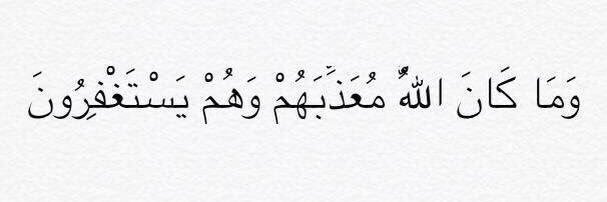 وَمَا كَانَ اللهُ مُعَذِّبَهُمْ وَهُمْ يَسْتَغْفِرُونَ